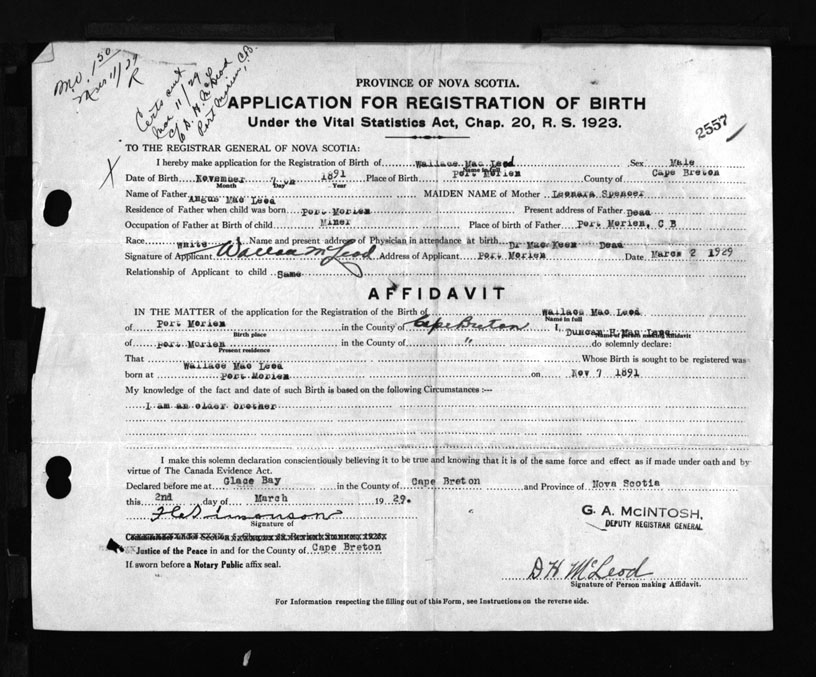 MO. 1.50
Mar 11/29
R
Certs out
Mar 11/29
c/o D. H. McLeod
Port Morien, C.B.
PROVINCE OF NOVA SCOTIA.
APPLICATION FOR REGISTRATION OF BIRTH
Under the Vital Statistics Act, Chap. 20, R. S. 1923.
2557
TO THE REGISTRAR GENERAL OF NOVA SCOTIA:
X
I hereby make application for the Registration of Birth of Wallace Mac Leod Sex Male
Name in full
Date of Birth November 7 th 1891 Place of Birth Port Morien County of Cape Breton
Month Day Year
Name of Father Angus Mac Leod MAIDEN NAME of Mother Leonara Spencer
Residence of Father when child was born Port Morien Present address of Father Dead
Occupation of Father at Birth of child Miner Place of birth of Father Port Morien, C B
Race White Name and present address of Physician in attendance at birth Dr Mac Keen Dead
Signature of Applicant Wallace McLeod Address of Applicant Port Morien Date March 2 1929
Relationship of Applicant to child Same
AFFIDAVIT
IN THE MATTER of the application for the Registration of the Birth of Wallace Mac Leod
Name in full
of Port Morien in the County of Cape Breton I, Duncan H Mac Leod
Birth place Name of person making Affidavit
of Port Morien in the County of " do solemnly declare:
Present residence
That Wallace Mac Leod Whose Birth is sought to be registered was
born at Port Morien on Nov 7 1891
My knowledge of the fact and date of such Birth is based on the following Circumstances :—
I am an elder brother
I make this solemn declaration conscientiously believing it to be true and knowing that it is of the same force and effect as if made under oath and by
virtue of The Canada Evidence Act.
Declared before me at Glace Bay in the County of Cape Breton and Province of Nova Scotia
this 2nd day of March 1929.
Signature of
G. A. McINTOSH,
DEPUTY REGISTRAR GENERAL
Justice of the Peace in and for the County of Cape Breton
If sworn before a Notary Public affix seal.
D H McLeod
Signature of Person making Affidavit.
For Information respecting the filling out of this Form, see Instructions on the reverse side.